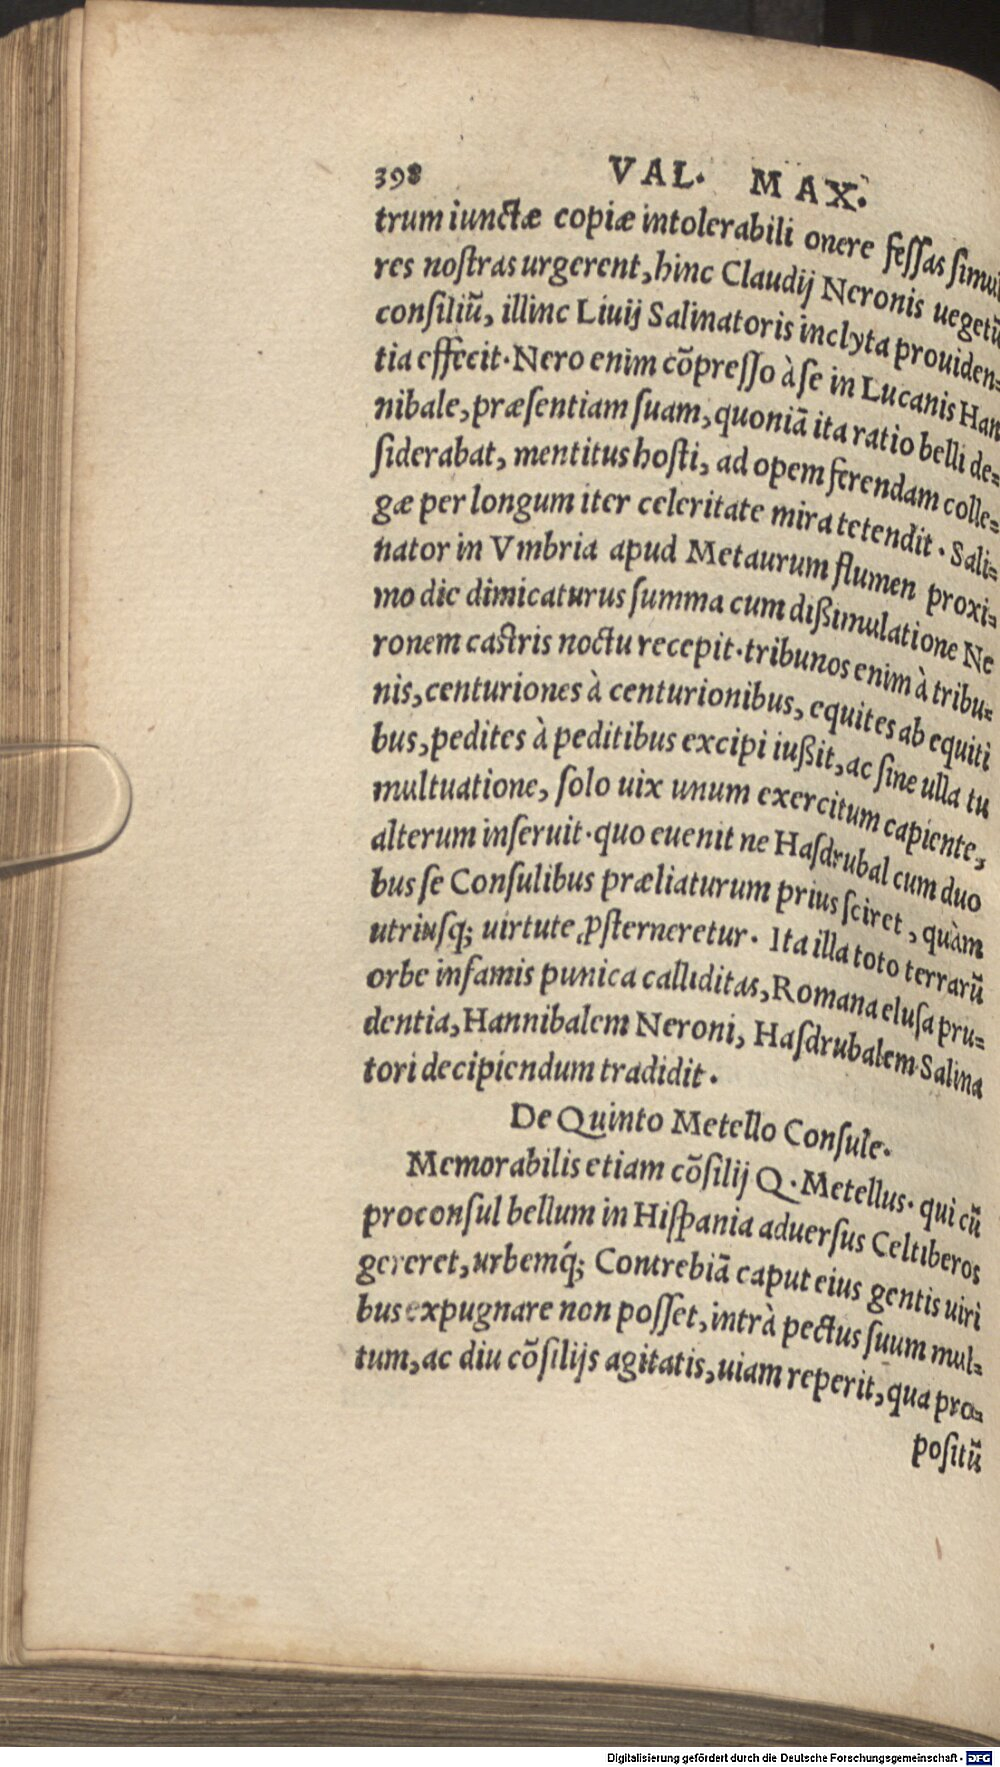 398 VAL. MAX.
trum iunctæ copiæ intolerabili onere feſſas ſimul
res noſtras urgerent, hinc Claudij Neronis uegetũ
conſiliũ, illinc Liuij Salinatoris inclyta prouiden-
tia effecit. Nero enim cõpreſſo à ſe in Lucanis Han
nibale, præſentiam ſuam, quoniã ita ratio belli de-
ſiderabat, mentitus hoſti, ad opem ferendam colle-
gæ per longum iter celeritate mira tetendit. Sali-
nator in Vmbria apud Metaurum flumen proxi-
mo die dimicaturus ſumma cum dißimulatione Ne
ronem caſtris noctu recepit. tribunos enim à tribu-
nis, centuriones à centurionibus, equites ab equiti
bus, pedites à peditibus excipi iußit, ac ſine ulla tu
multuatione, ſolo uix unum exercitum capiente,
alterum inſeruit. quo euenit ne Haſdrubal cum duo
bus ſe Conſulibus præliaturum prius ſciret, quàm
utriuſq; uirtute ꝓſterneretur. Ita illa toto terrarũ
orbe infamis punica calliditas, Romana eluſa pru-
dentia, Hannibalem Neroni, Haſdrubalem Salina
tori decipiendum tradidit.
De Quinto Metello Conſule.
Memorabilis etiam cõſilij Q. Metellus. qui cũ
proconſul bellum in Hiſpania aduerſus Celtiberos
gereret, urbemq́; Contrebiã caput eius gentis uiri
bus expugnare non poſſet, intrà pectus ſuum mul-
tum, ac diu cõſilijs agitatis, uiam reperit, qua pro-
poſitũ
Digitalisierung gefördert durch die Deutsche Forschungsgemeinschaft - DFG